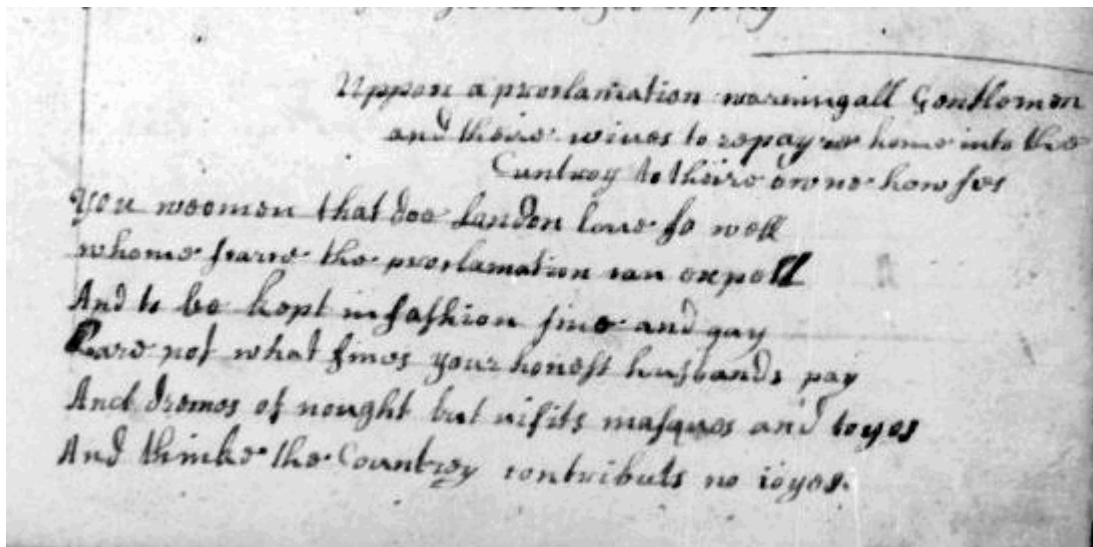 Uppon a proclamation warning all Gentlemen
and theire wives to repayre home into the
Cuntrey to theire owne howses
You weomen that doe London loue so well
whome scarce the proclamation can expell
And to be kept in fashion fine and gay
Care not what fines your honest husbands pay
And dremes of nought but visits masques and toyes
And thinke the Countrey contributs no ioyes.